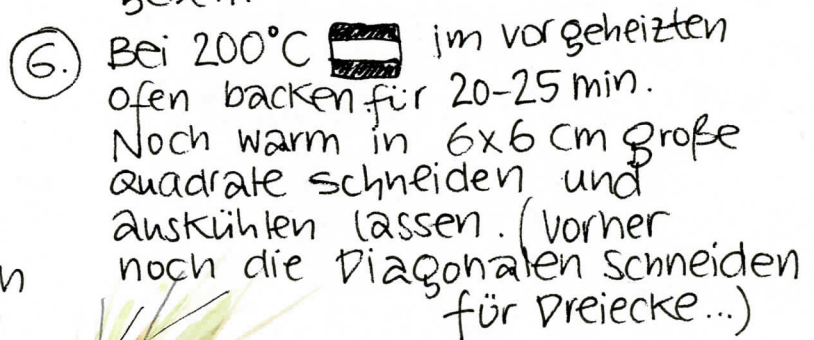 6. Bei 200°C im vorgeheizten
Ofen backen für 20-25 min.
Noch warm in 6x6 cm große
Quadrate schneiden und
auskühlen lassen. (vorher
noch die Diagonalen schneiden
für Dreiecke...)